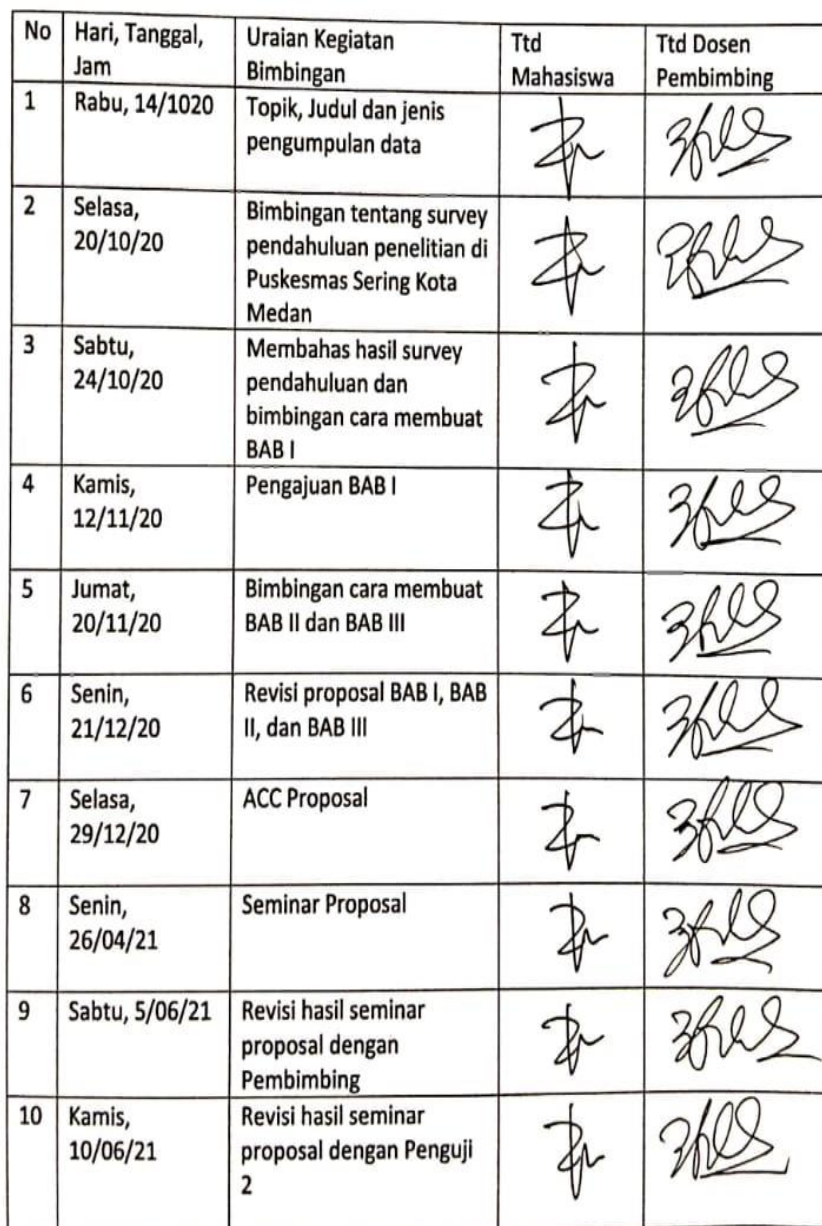 No
Hari, Tanggal,
Jam
Uraian Kegiatan
Bimbingan
Ttd
Mahasiswa
Ttd Dosen
Pembimbing
1
Rabu, 14/1020
Topik, Judul dan jenis
pengumpulan data
2
Selasa,
20/10/20
Bimbingan tentang survey
pendahuluan penelitian di
Puskesmas Sering Kota
Medan
3
Sabtu,
24/10/20
Membahas hasil survey
pendahuluan dan
bimbingan cara membuat
BAB I
4
Kamis,
12/11/20
Pengajuan BAB I
5
Jumat,
20/11/20
Bimbingan cara membuat
BAB II dan BAB III
6
Senin,
21/12/20
Revisi proposal BAB I, BAB
II, dan BAB III
7
Selasa,
29/12/20
ACC Proposal
8
Senin,
26/04/21
Seminar Proposal
9
Sabtu, 5/06/21
Revisi hasil seminar
proposal dengan
Pembimbing
10
Kamis,
10/06/21
Revisi hasil seminar
proposal dengan Penguji
2